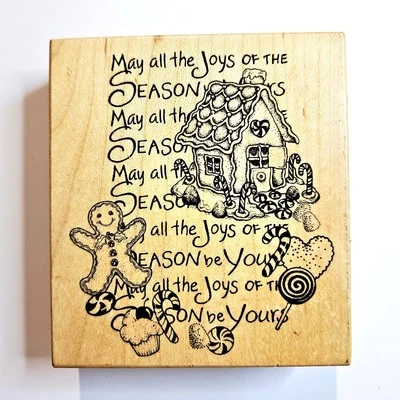 May all the Joys OF THE
SEASON RS
May all th
SEASO
May all t
SEASO
all the Joys OF T
EASON be You
May all the Joys OF TH
S SON be Yours